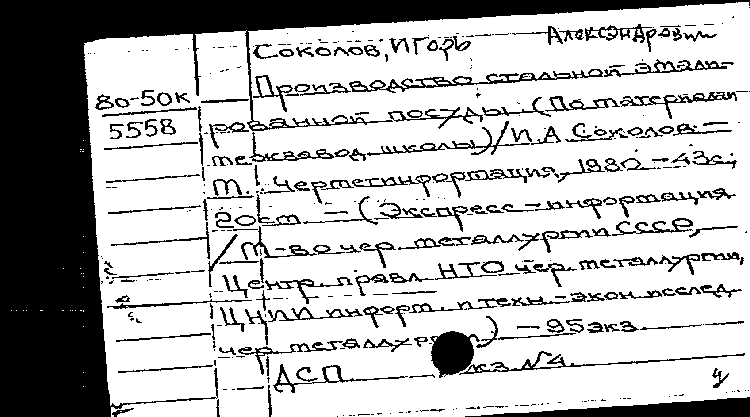 Соколов, Игорь Александрович
80-50к
5558
Производство стальной эмали-
рованной посуды: (По материалам
межзавод. школы) / И.А. Соколов. —
М.: Черметинформация, 1980 — 43 с;
20 см. — (Экспресс-информация
/ М-во чер. металлургии СССР,
Центр. правл. НТО чер. металлургии,
ЦНИИ информ. и техн.-экон. исслед.
чер. металлургии) — 95 экз.
ДСП экз. №4.